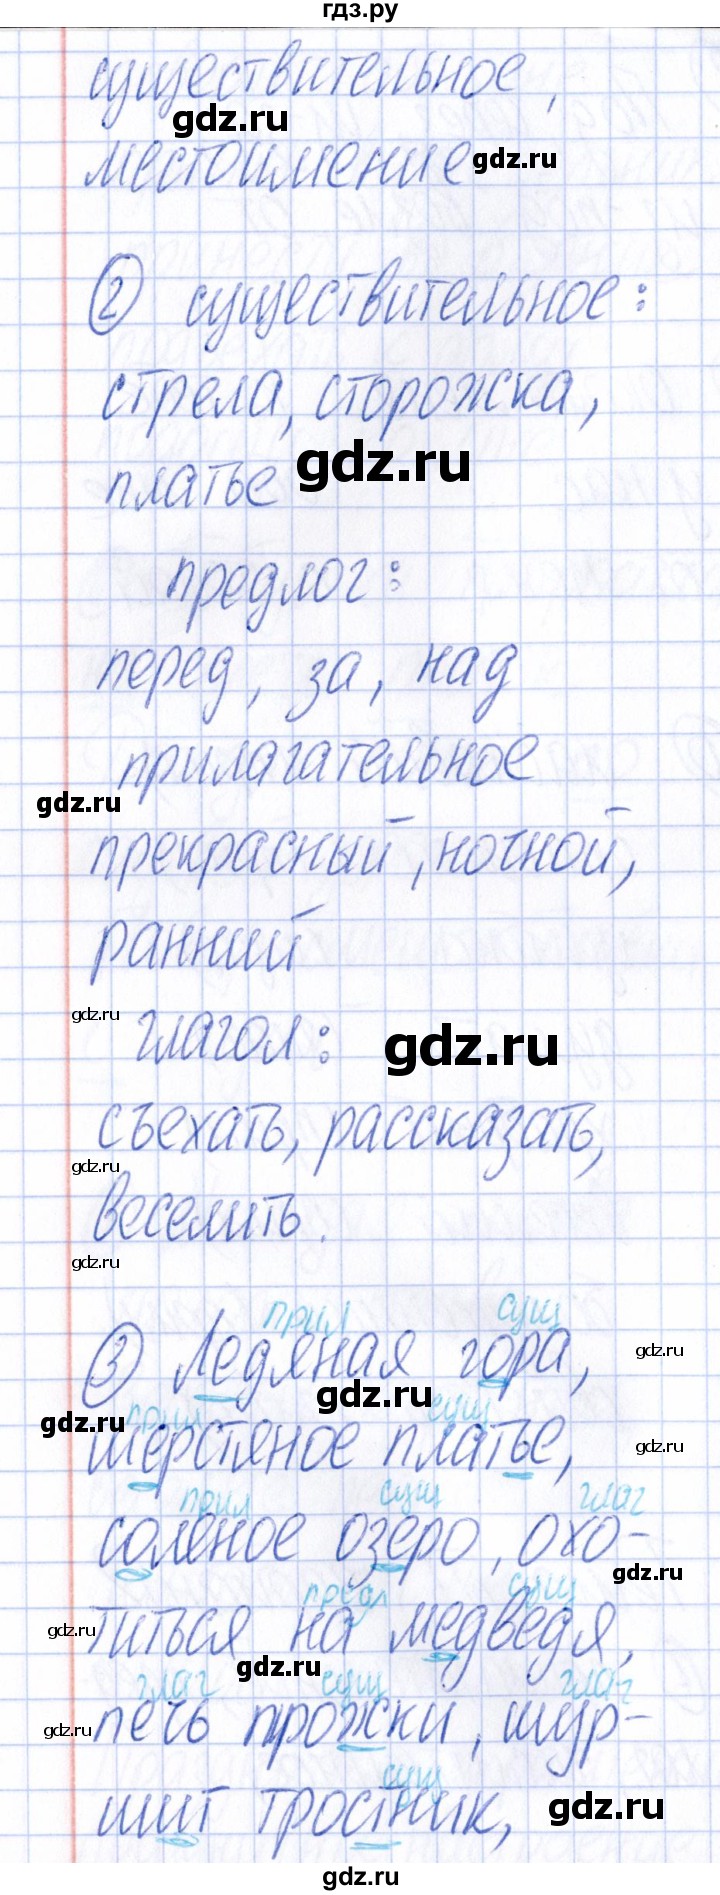 гдз.ру
существительное,
gdz.ru
местоимение
gdz.ru
2 существительное:
стрела, сторожка,
gdz.ru
платье
предлог:
перед, за, над
прилагательное
gdz.ru
прекрасный, ночной,
ранний
gdz.ru
глагол:
gdz.ru
съехать, рассказать,
gdz.ru
веселить.
gdz.ru
прил сущ
3 Ледяная гора,
gdz.ru
gdz.ru
gdz.ru
прил сущ
шерстяное платье,
gdz.ru
прил сущ глаг
соленое озеро, охо-
gdz.ru
предл сущ
титься на медведя,
gdz.ru
gdz.ru
глаг сущ глаг
печь прожки, шур-
gdz.ru
сущ
шит тростник,
gdz.ru
gdz.ru